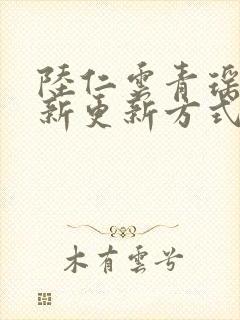 陸仁雲青瑤
新更新方式
木有雲兮